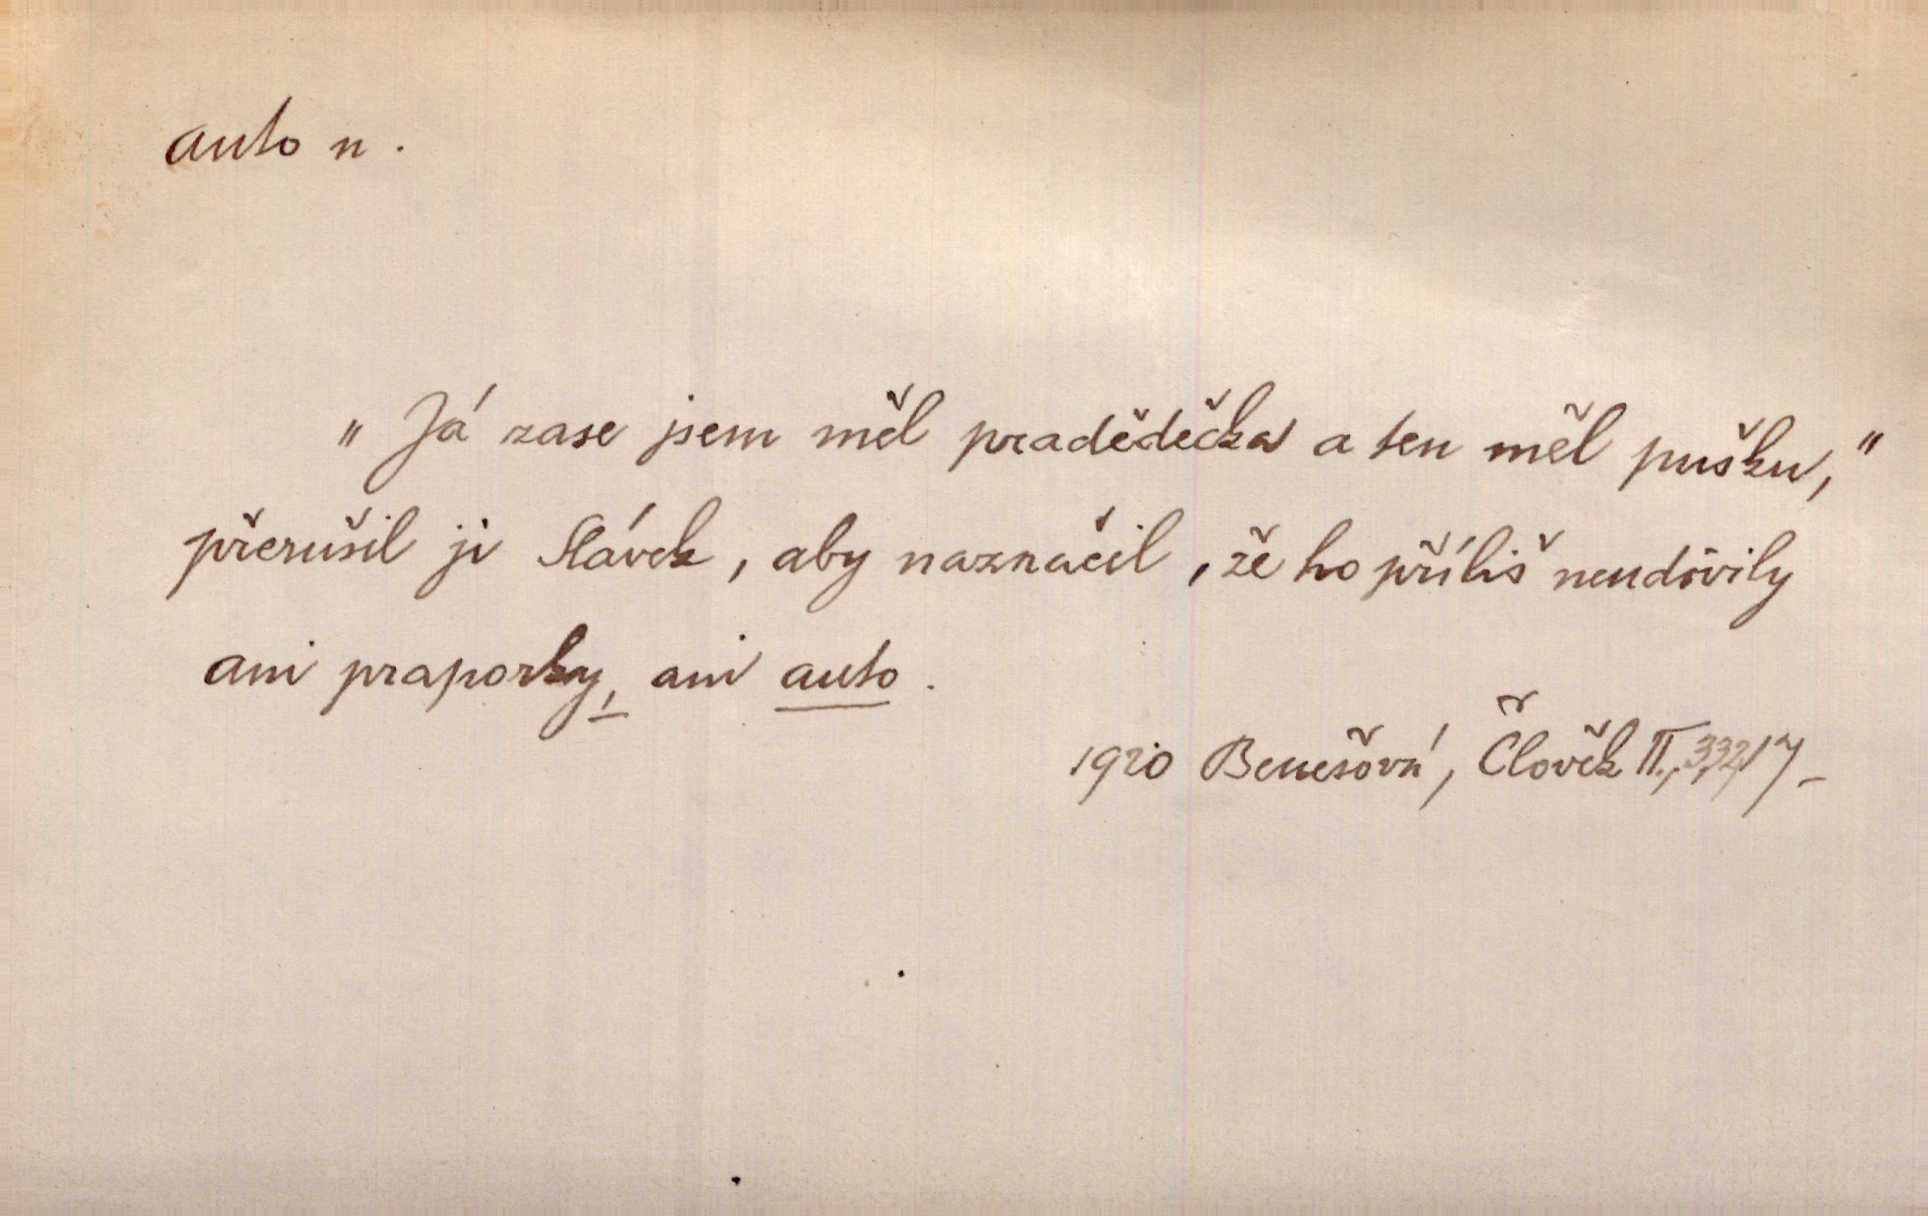 auto n.
"Já zase jsem měl pradědečka a ten měl pušku,"
přerušil ji Slávek, aby naznačil, že ho příliš neudivily
ani praporky, ani auto.
1920 Benešová, Člověk II.,